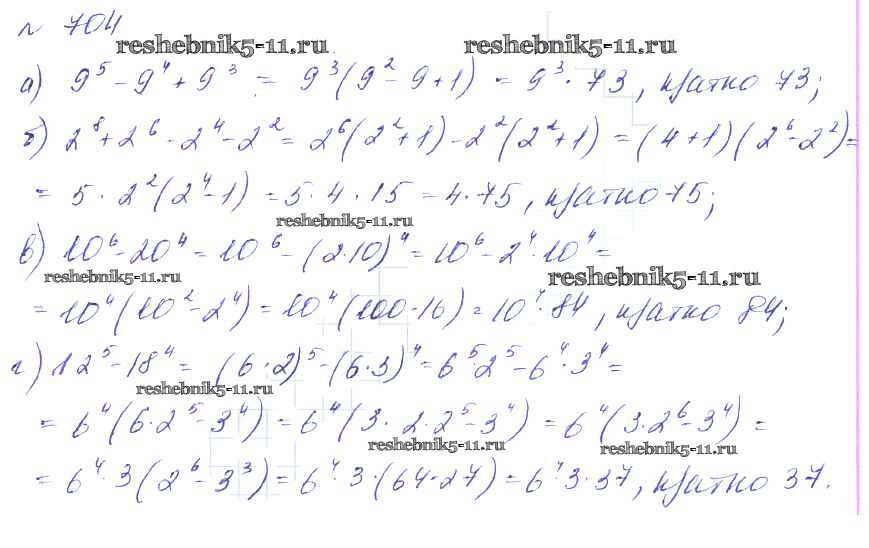 № 704
reshebnik5-11.ru reshebnik5-11.ru
а) 9⁵ - 9⁴ + 9³ = 9³(9² - 9 + 1) = 9³ · 73, кратно 73;
б) 2⁸ + 2⁶ - 2⁴ - 2² = 2⁶(2² + 1) - 2²(2² + 1) = (4 + 1)(2⁶ - 2²) =
= 5 · 2²(2⁴ - 1) = 5 · 4 · 15 = 4 · 75, кратно 75;
reshebnik5-11.ru
в) 10⁶ - 20⁴ = 10⁶ - (2·10)⁴ = 10⁶ - 2⁴ · 10⁴ =
reshebnik5-11.ru reshebnik5-11.ru
= 10⁴(10² - 2⁴) = 10⁴(100 - 16) = 10⁴ · 84, кратно 84;
г) 12⁵ - 18⁴ = (6 · 2)⁵ - (6 · 3)⁴ = 6⁵ · 2⁵ - 6⁴ · 3⁴ =
reshebnik5-11.ru
= 6⁴(6 · 2⁵ - 3⁴) = 6⁴(3 · 2 · 2⁵ - 3⁴) = 6⁴(3 · 2⁶ - 3⁴) =
reshebnik5-11.ru reshebnik5-11.ru
= 6⁴ · 3(2⁶ - 3³) = 6⁴ · 3 · (64 - 27) = 6⁴ · 3 · 37, кратно 37.